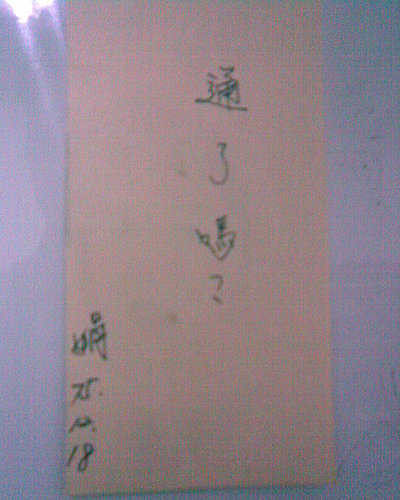 通了嗎?
75. 10. 18